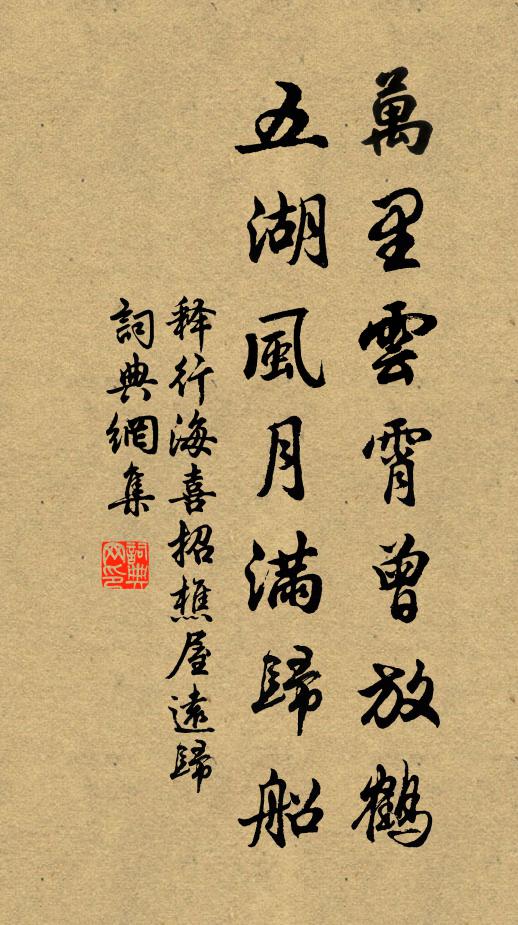 萬里雲霄曾放鶴
五湖風月满歸船
释行海喜招樵屋遠歸
詞典網集
詞典網印